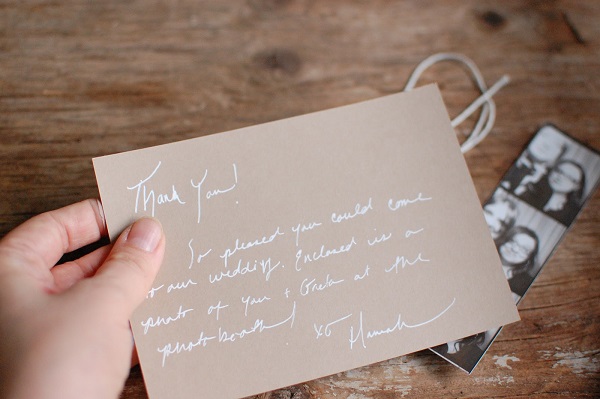 Thank You!
So pleased you could come
to our wedding. Enclosed is a
photo of you + Greta at the
photobooth!
xo Hannah